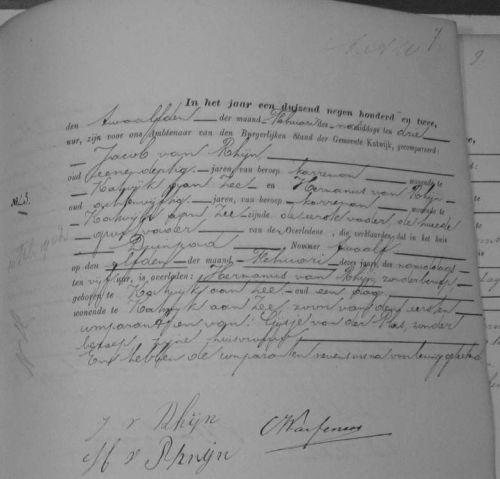 In het jaar een duizend negen honderd en twee,
den twaalfden der maand Februari des namiddags ten drie
ure, zijn voor ons Ambtenaar van den Burgerlijken Stand der Gemeente Katwijk, gecompareerd:
Jacob van Rhijn
oud eenendertig jaren, van beroep wonende te
Katwijk aan Zee en Hermanus van Rhijn
oud jaren, van beroep wonende te
Katwijk aan Zee zijnde de eerste vader, de tweede
grootvader van de Overledene, die verklaarden, dat in het huis
Nommer twaalf
op den elfden der maand Februari dezes jaars, des namiddags
ten vijf ure, is overleden: Hermanus van Rhijn zonder beroep
geboren te Katwijk aan Zee oud een dag
wonende te Katwijk aan Zee, zoon van den eersten
comparant en van: van der Plas, zonder
beroep, zijne huisvrouw
En hebben de comparanten nevens ons na voorlezing geteekend
J v Rhijn
H v Rhijn